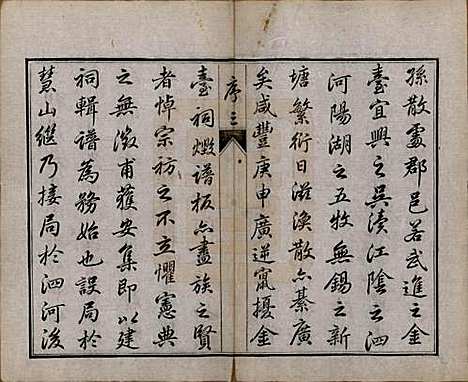 孫散處郡邑若武進之金
臺宜興之吳瀆江陰之泗
河陽湖之五牧無錫之新
塘繁衍日滋渙散亦綦廣
矣咸豐庚申廣逆竄擾金
序三
臺祠燬譜板亦盡族之賢
者悼宗祊之不立懼憲典
之無徵甫獲安集即以建
祠輯譜為務始也設局於
慧山繼乃接局於泗河後